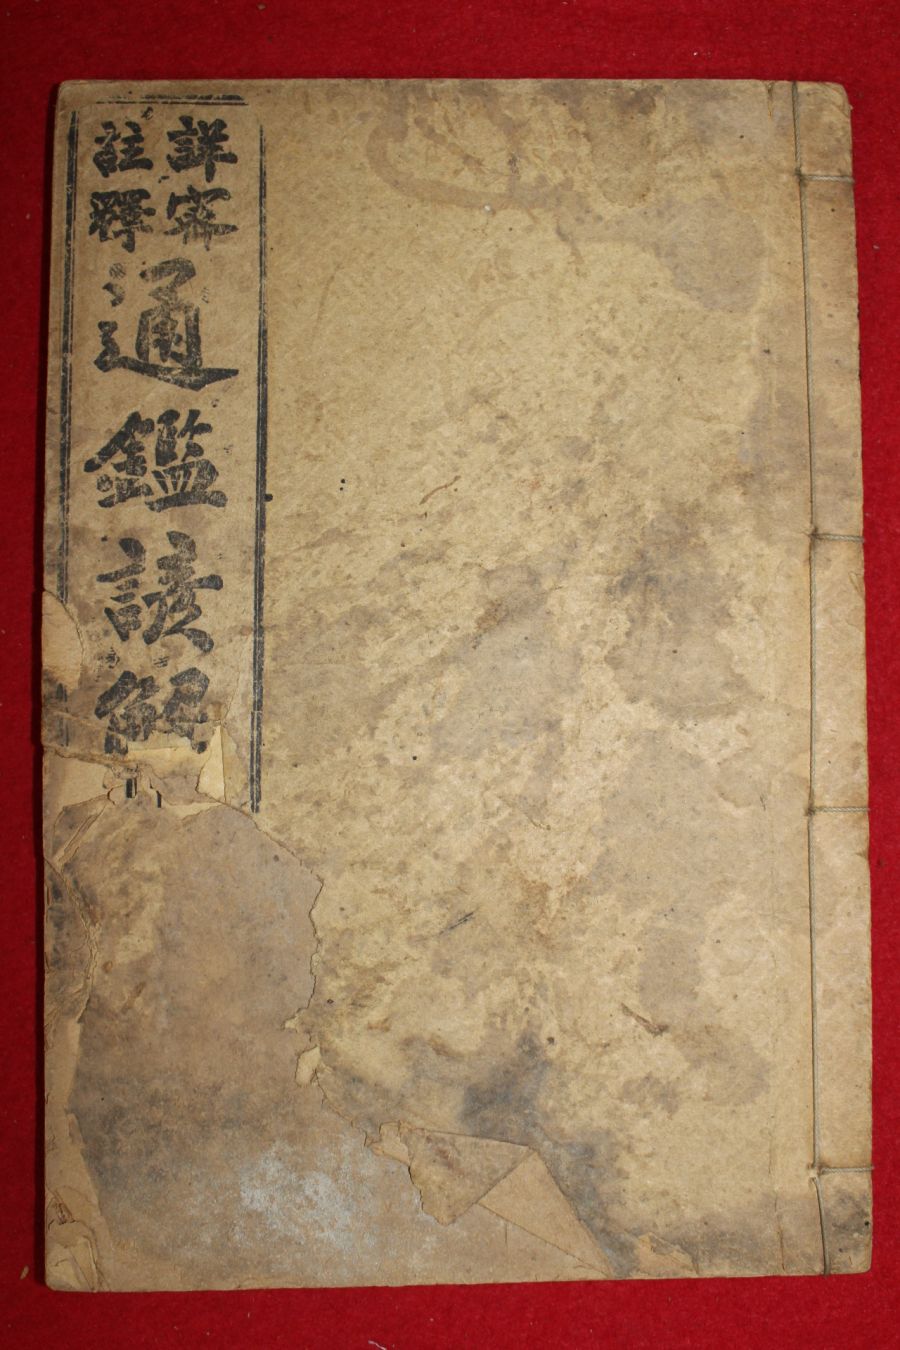 詳密
註釋
通鑑諺解